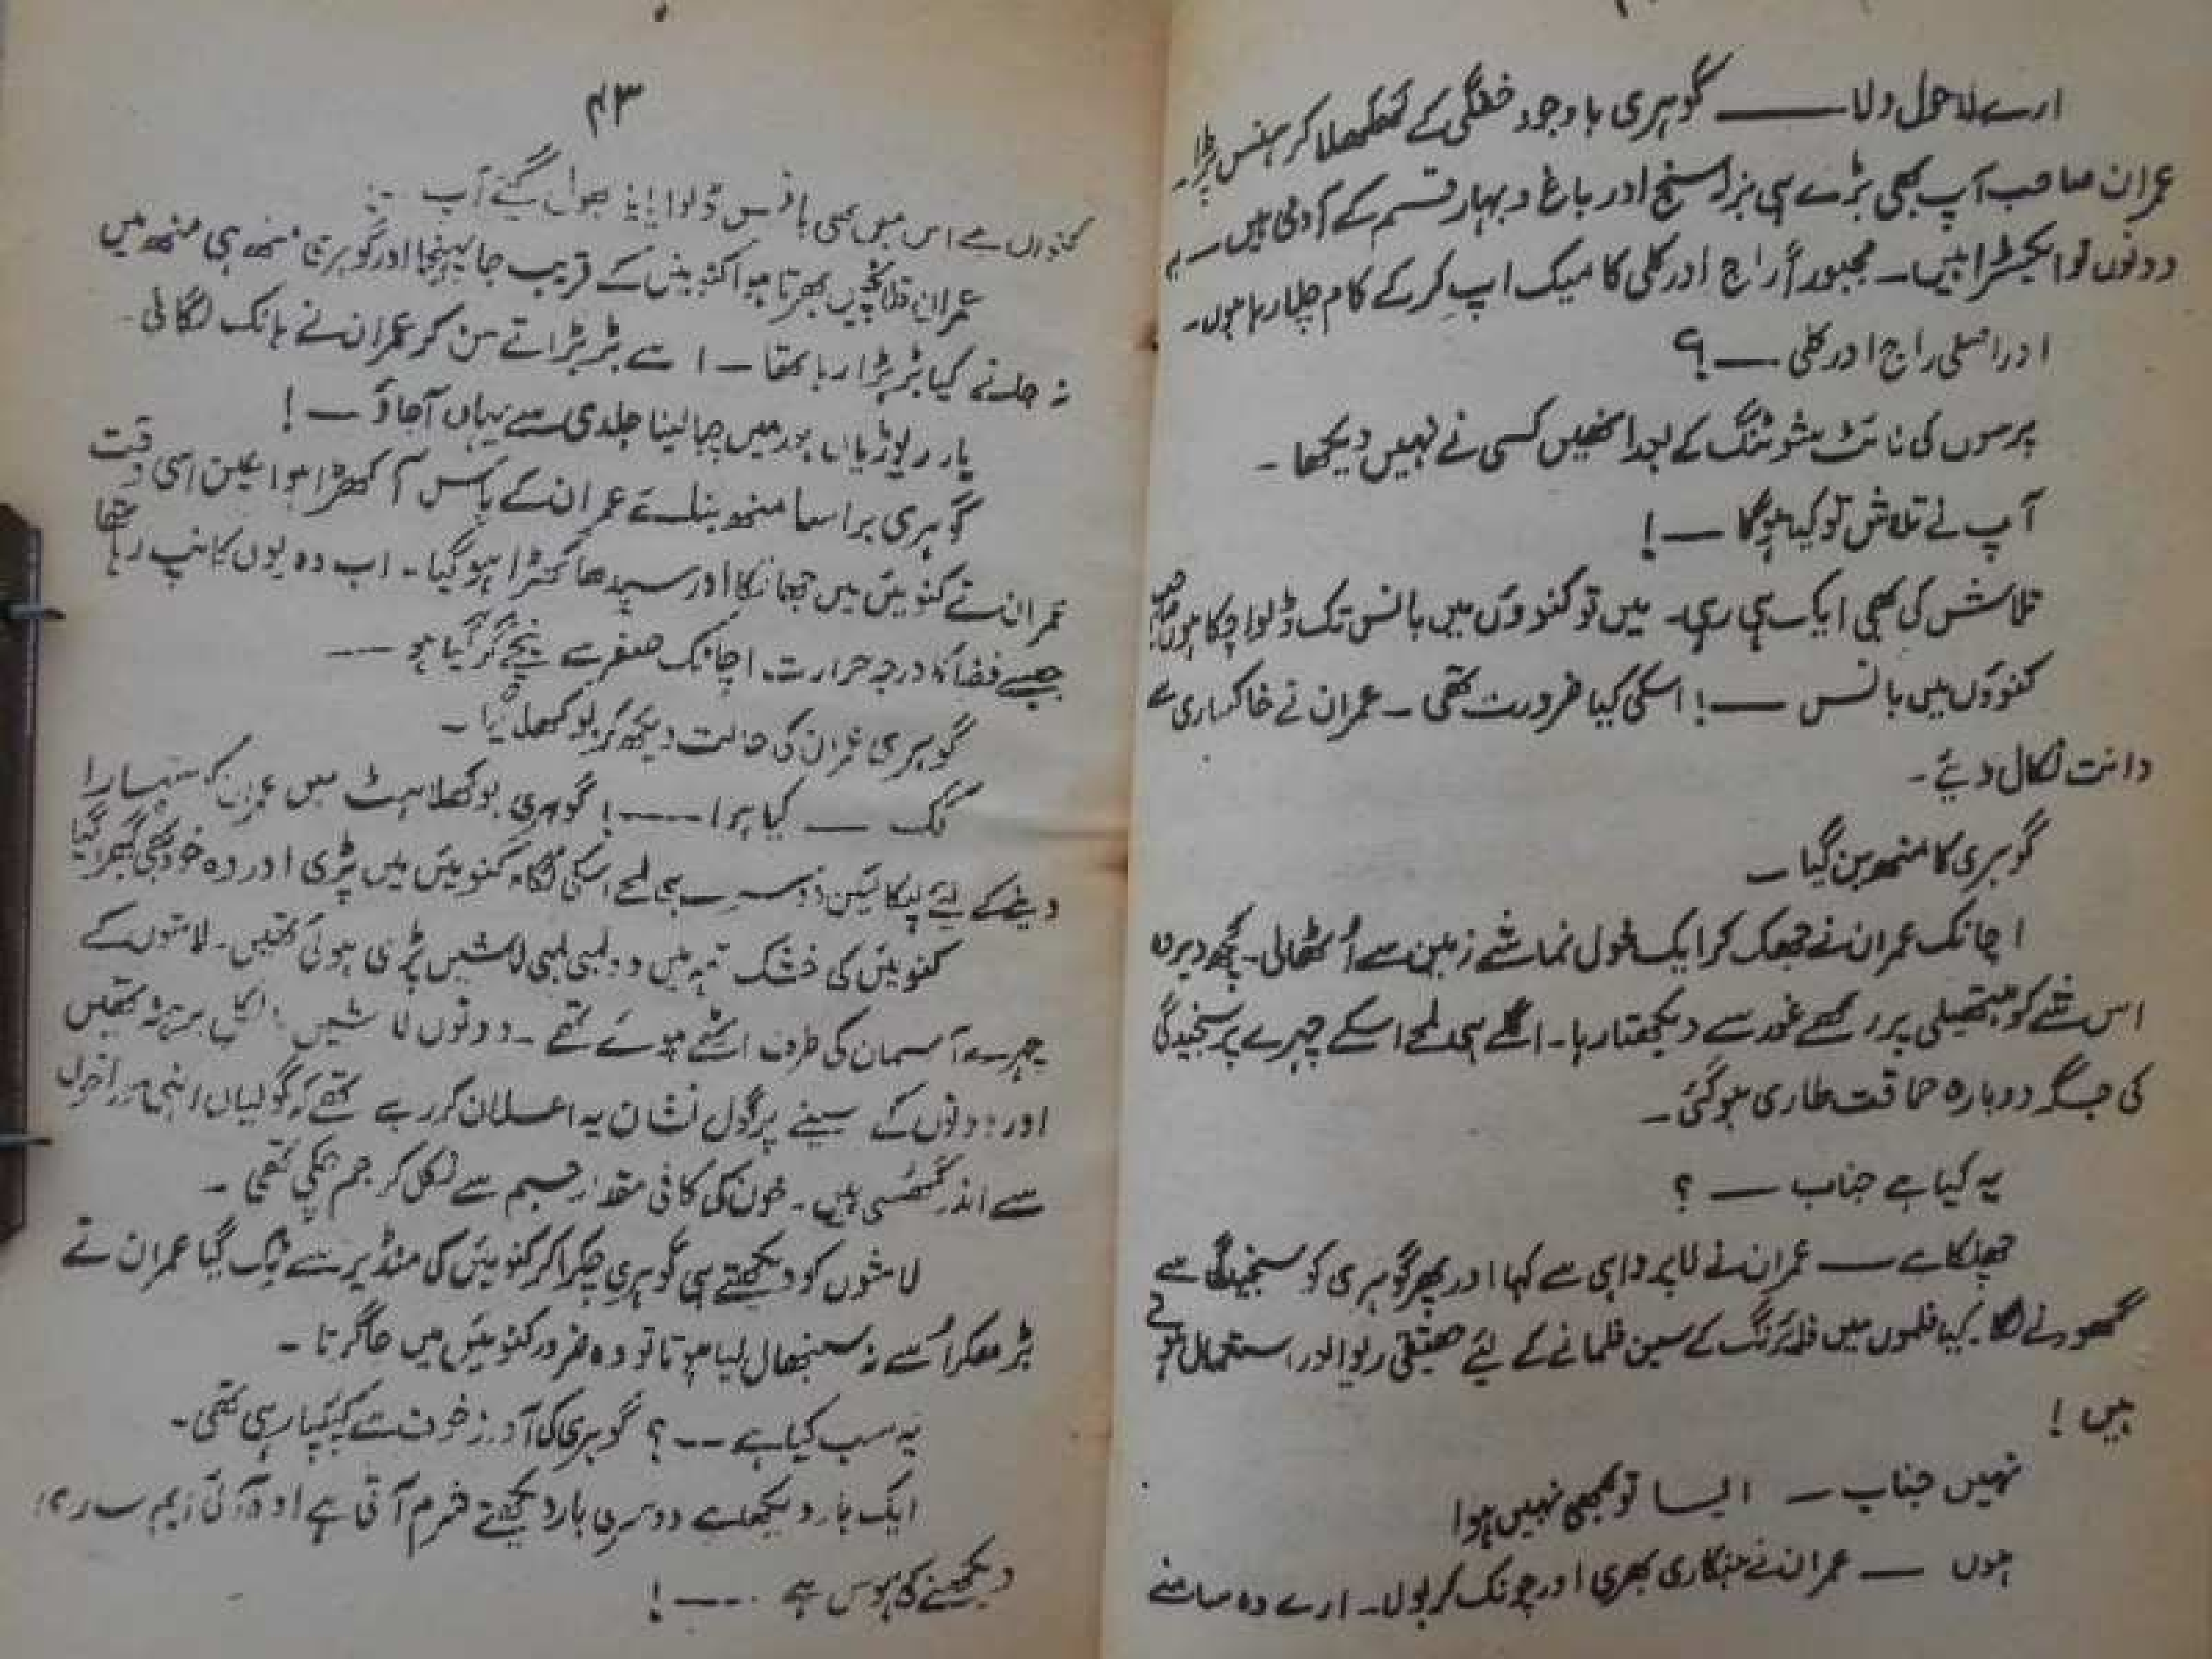 ارے لاحول ولا —— گوہری باوجود خفگی کے کھکھلا کر ہنس پڑا۔
عمران صاحب آپ بھی بڑے ہی بزلہ سنج اور باغ و بہار قسم کے آدمی ہیں۔ یہ
دونوں تو ایکسٹرا ہیں۔ مجبوراً راج اور کلی کا میک اپ کر کے کام چلا رہا ہوں۔
اور اصلی راج اور کلی —؟
پرسوں کی نائٹ شوٹنگ کے بعد انھیں کسی نے نہیں دیکھا۔
آپ نے تلاش تو کیا ہوگا —!
تلاش کی بھی ایک ہی رہی۔ میں تو کنوؤں میں بانس تک ڈلوا چکا ہوں
کنوؤں میں بانس —! اسکی کیا ضرورت تھی۔ عمران نے خاکساری سے
دانت نکال دیئے۔
گوہری کا منھ بن گیا۔
اچانک عمران نے جھک کر ایک خول نما شے زمین سے اُٹھالی۔ کچھ دیر وہ
اس شے کو ہتھیلی پر رکھے غور سے دیکھتا رہا۔ اگلے ہی لمحے اسکے چہرے پر سنجیدگی
کی جگہ دوبارہ حماقت طاری ہو گئی۔
یہ کیا ہے جناب —؟
چھلکا ہے — عمران نے لاپرواہی سے کہا اور پھر گوہری کو سنجیدگی سے
گھورنے لگا۔ کیا فلموں میں فائرنگ کے سین فلمانے کے لئے حقیقی ریوالور استعمال ہوتے
ہیں!
نہیں جناب — ایسا تو کبھی نہیں ہوا
ہوں — عمران نے ہنکاری بھری اور چونک کر بولا۔ ارے وہ سامنے
۴۳
کنواں ہے اس میں بھی بانس ڈلوایا یا بھول گئے آپ
عمران قلانچیں بھرتا ہوا کنوئیں کے قریب جا پہنچا اور گوہری منھ ہی منھ میں
نہ جانے کیا بڑبڑا رہا تھا۔ اسے بڑبڑاتے سن کر عمران نے ہانک لگائی۔
یار ریوڑیاں بعد میں چبا لینا جلدی سے یہاں آجاؤ —!
گوہری برا سا منھ بنائے عمران کے پاس آ کھڑا ہوا عین اسی وقت
عمران نے کنوئیں میں جھانکا اور سیدھا کھڑا ہو گیا۔ اب وہ یوں کانپ رہا تھا
جیسے فضا کا درجہ حرارت اچانک صفر سے نیچے گر گیا ہو ——
گوہری عمران کی حالت دیکھ کر بوکھلا گیا۔
کک — کیا ہوا ——! گوہری بوکھلاہٹ میں عمران کو سہارا
دینے کے لیے لپکا لیکن دوسرے ہی لمحے اسکی نگاہ کنوئیں میں پڑی اور وہ خود بھی گھبرا گیا
کنوئیں کی خشک تہہ میں دو لمبی لمبی لاشیں پڑی ہوئی تھیں۔ لاشوں کے
چہرے آسمان کی طرف اٹھے ہوئے تھے۔ دونوں لاشیں بالکل برہنہ تھیں
اور دونوں کے سینے پر گول نشان یہ اعلان کر رہے تھے کہ گولیاں انہی سوراخوں
سے اندر گھسی ہیں۔ خون کی کافی مقدار جسم سے نکل کر جم چکی تھی۔
لاشوں کو دیکھتے ہی گوہری چکرا کر کنوئیں کی منڈیر سے ٹک گیا عمران نے
بڑھ کر اُسے نہ سنبھال لیا ہوتا تو وہ ضرور کنوئیں میں جا گرتا۔
یہ سب کیا ہے ——؟ گوہری کی آواز خوف سے کپکپا رہی تھی۔
ایک بار دیکھا ہے دوسری بار دیکھتے شرم آتی ہے اوہ آئی ایم سوری
دیکھنے کی ہوس ہے ——!